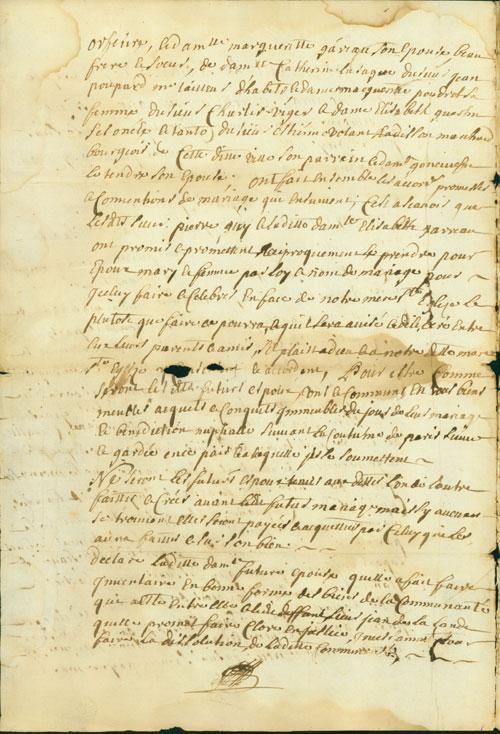 orfeivre, & dam.lle margueritte gareau son Epouse beau
frere & soeur, de dam.lle Catherine
poupard me tailleur d'habits & dame marguerite
femme du sieur Charles viger & dame Elisabeth
sel oncle & tante, du sieur Estienne volant Radisson marchand
bourgeois de Cette ditte ville son parrain & dam.e genevieve
letendre son Epouse. Ont fait Ensemble les accors promesses
& Conventions de mariage qui Ensuivent; C'est a scavoir que
lesdits sieur pierre guy & laditte dam.lle Elisabeth
ont promis & promettent Reciproquement se prendre pour
Epoux mary & femme par loy & nom de mariage pour
Iceluy faire & Celebrer En face de notre mere Ste Eglise le
plutost que faire ce pourra, & quil sera avisé & deliberé Entre
Eux leurs parents & amis, Sy plaist a dieu & a notre ditte mere
Ste Eglise accordent, Pour Estre Comme
seront lesdits futurs Epoux Uns & Communs En tous biens
meubles acquets & Conquets Immeubles du jour de leur mariage
& benediction nuptialle suivant la Coutume de paris
& gardée en ce païs a laquelle ils se soumettent
Ne seront les futurs Epoux tenus aux dettes l'un de l'autre
faittes & Creés avant leur futur mariage, mais sy aucunes
se trouvent Elles seront payées & acquittées par Celuy qui les
aura faittes & sur son bien.
declare laditte dam.lle future Epouse quelle a fait faire
Inventaire En bonne forme des biens de la Communauté
qui a Esté Entre Elle & ledit deffunt sieur jean de la
quelle promet faire Clore En justice,
faire la dissolution de laditte Communauté,